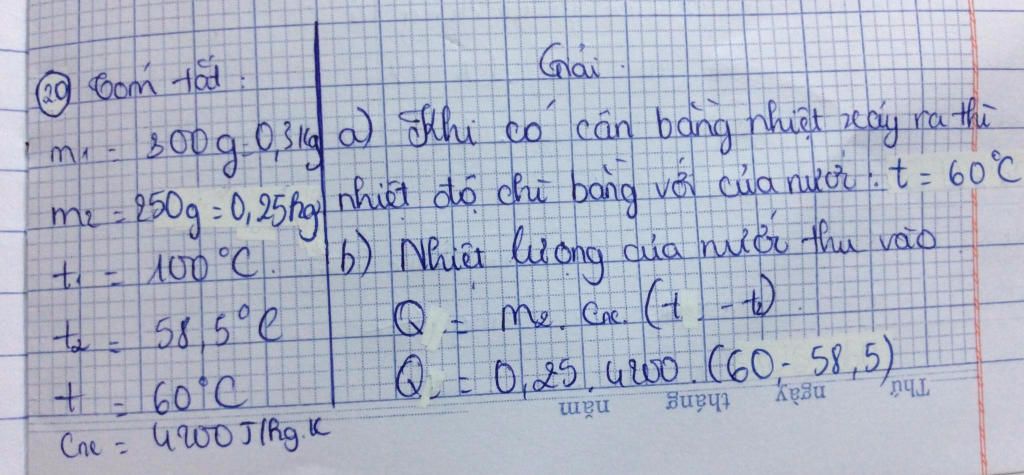 20 Tóm tắt :
m1 = 300g = 0,3kg
m2 = 250g = 0,25kg
t1 = 100°C.
t2 = 58,5°C
t = 60°C
Cnc = 4200J/kg.K
Giải.
a) Khi có cân bằng nhiệt xảy ra thì
nhiệt độ chì bằng với của nước : t = 60°C
b) Nhiệt lượng của nước thu vào
Q = m2. Cnc. (t - t2)
Q = 0,25. 4200. (60 - 58,5)
Thứ ngày tháng năm